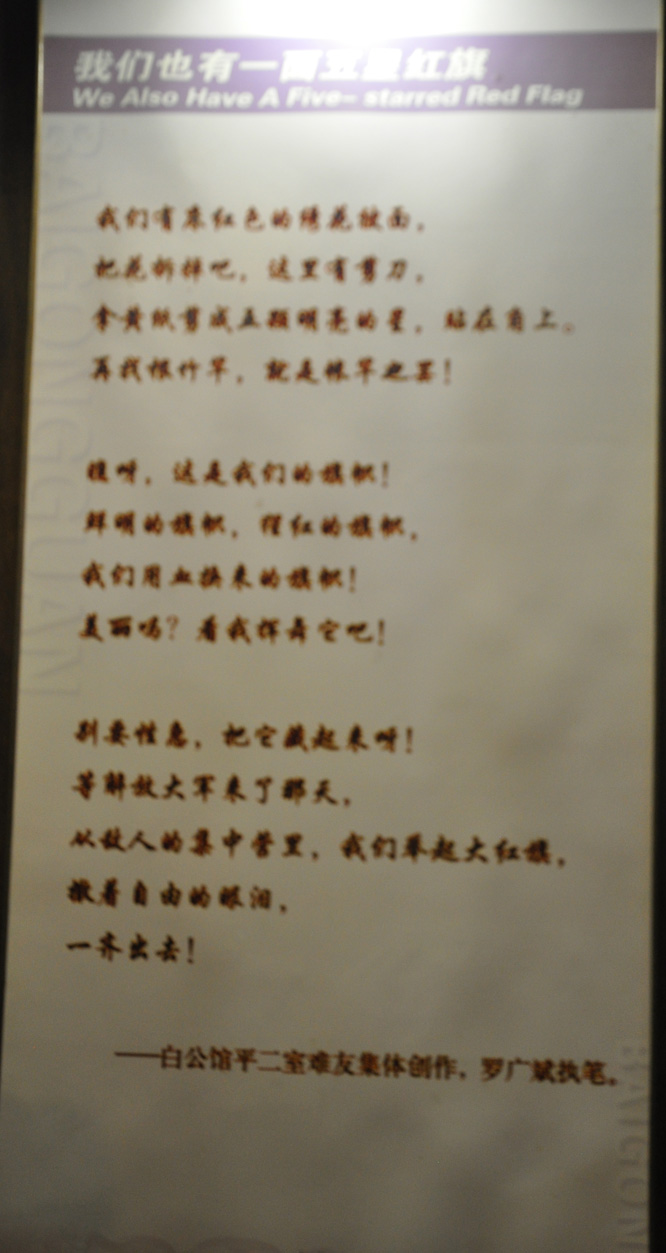 我们也有一面五星红旗
We Also Have A Five- starred Red Flag
我们有床红色的绣花被面，
把花拆掉吧，这里有剪刀，
拿黄纸剪成五颗明亮的星，贴在角上。
再找根竹竿，就是帐竿也罢！
瞧呀，这是我们的旗帜！
鲜明的旗帜，猩红的旗帜，
我们用血换来的旗帜！
美丽吗？看我挥舞它吧！
别要性急，把它藏起来呀！
等解放大军来了那天，
从敌人的集中营里，我们举起大红旗，
撒着自由的眼泪，
一齐出去！
——白公馆平二室难友集体创作，罗广斌执笔。
BAIGONGGUAN
BAIGON